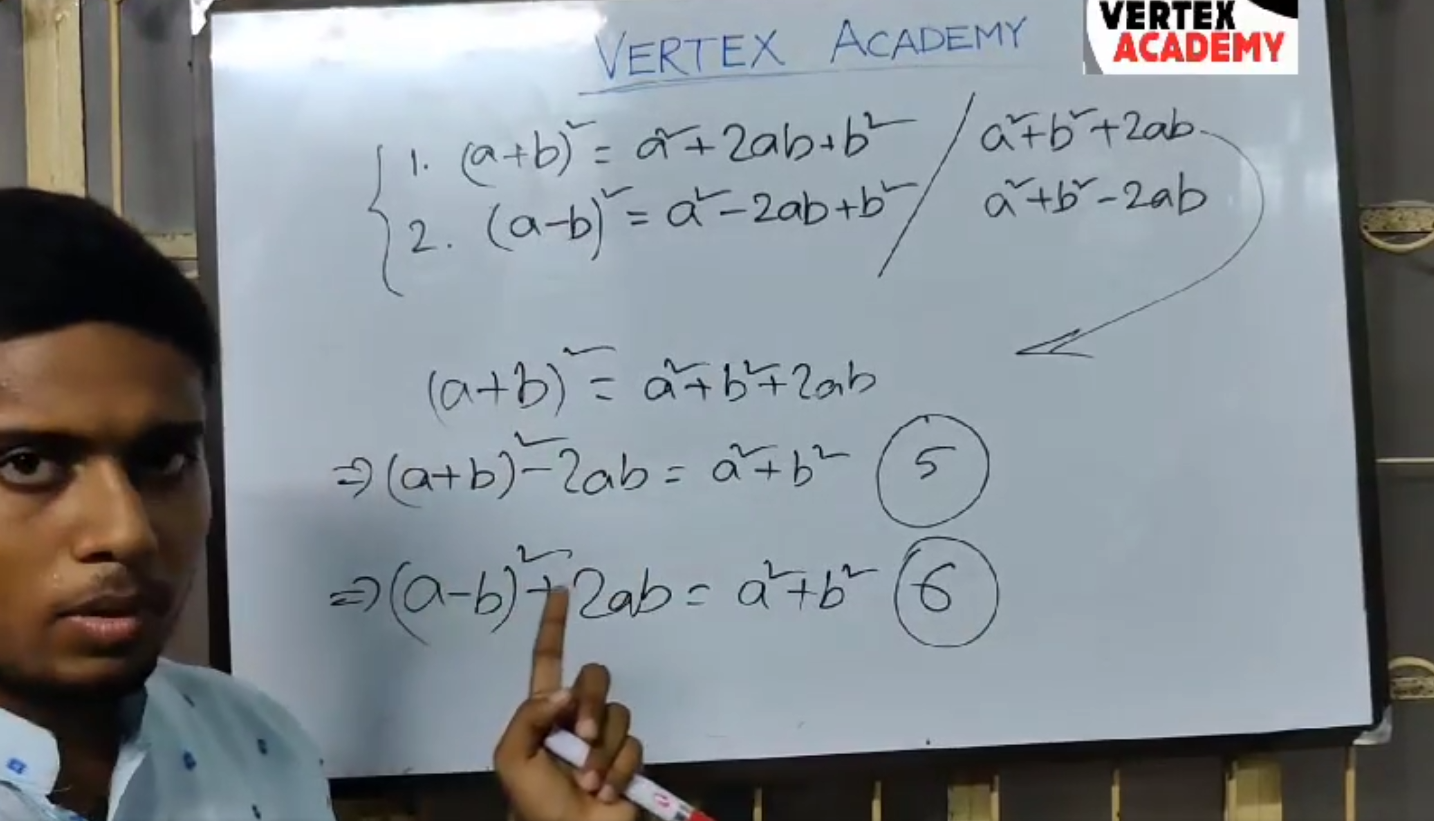 VERTEX ACADEMY
VERTEX
ACADEMY
1. (a+b)² = a²+2ab+b² / a²+b²+2ab
2. (a-b)² = a²-2ab+b² a²+b²-2ab
(a+b)² = a²+b²+2ab
⇒(a+b)²-2ab = a²+b² 5
⇒(a-b)²+2ab = a²+b² 6